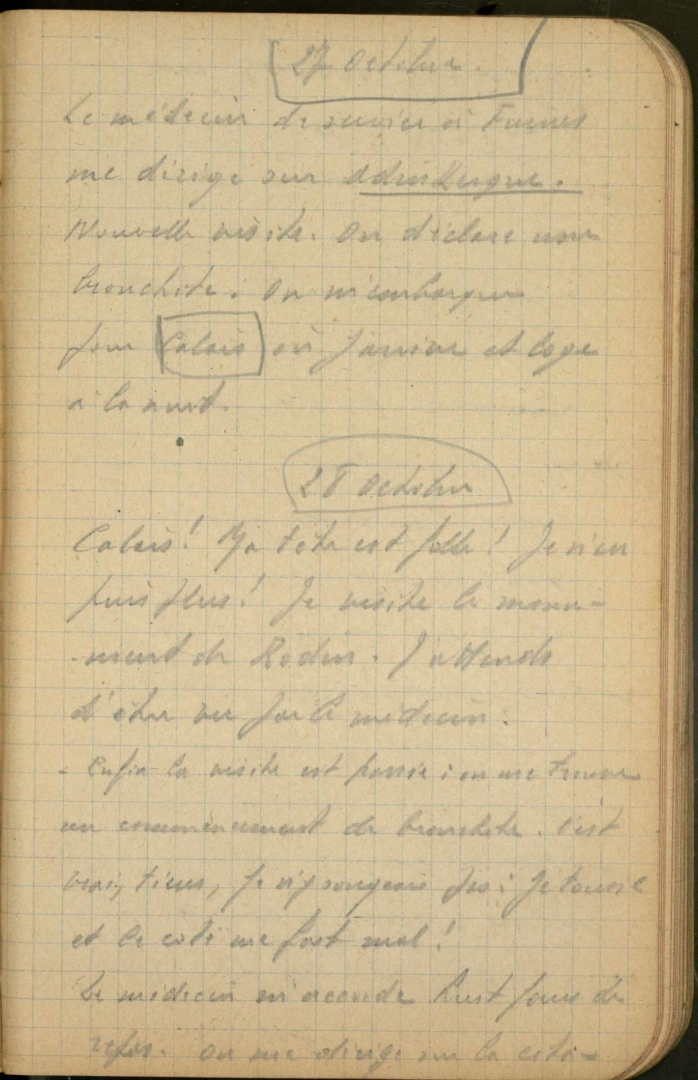 27 Octobre.
Le médecin de service à Furnes
me dirige sur Adinkerque.
Nouvelle visite. On déclare une
bronchite. On m'embarque
pour Calais où j'arrive et loge
à la nuit.
28 Octobre
Calais! Ma tête est folle! Je n'en
puis plus! Je visite le monu-
-ment de Rodin. J'attends
d'être vu par le médecin.
- Enfin la visite est passée: on me trouve
un commencement de bronchite. C'est
vrai, tiens, je n'y songeais pas: je tousse
et le coté me fait mal!
Le médecin m'accorde huit jours de
repos. On me dirige sur la cita-